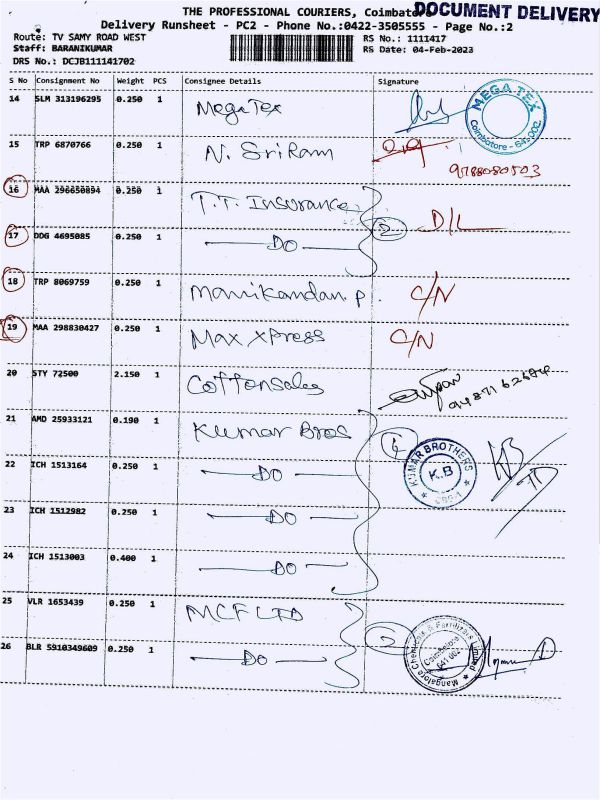 THE PROFESSIONAL COURIERS, Coimbatore
DOCUMENT DELIVERY
Delivery Runsheet - PC2 - Phone No.:0422-3505555 - Page No.:2
Route: TV SAMY ROAD WEST
RS No.: 1111417
Staff: BARANIKUMAR
RS Date: 04-Feb-2023
DRS No.: DCJB111141702
S No Consignment No Weight PCS Consignee Details Signature
14 SLM 313196295 0.250 1 MegaTex
MEGA TEX Coimbatore - 641 002.
15 TRP 6870766 0.250 1 N. SriRam
9788080503
16 MAA 296650894 0.250 1 T.T. Insurance
2 D/L
17 DDG 4695085 0.250 1 DO
18 TRP 8069759 0.250 1 Manikandan. P. C/N
19 MAA 298830427 0.250 1 Max Xpress C/N
20 STY 72500 2.150 1 Cottonsales
21 AMD 25933121 0.190 1 Kumar Bros
4 KUMAR BROTHERS K.B KB
22 ICH 1513164 0.250 1 DO
23 ICH 1512982 0.250 1 DO
24 ICH 1513003 0.400 1 DO
25 VLR 1653439 0.250 1 MCF LTD
2 Mangalore Chemicals & Fertilizers Limited Coimbatore
26 BLR 5910349609 0.250 1 DO